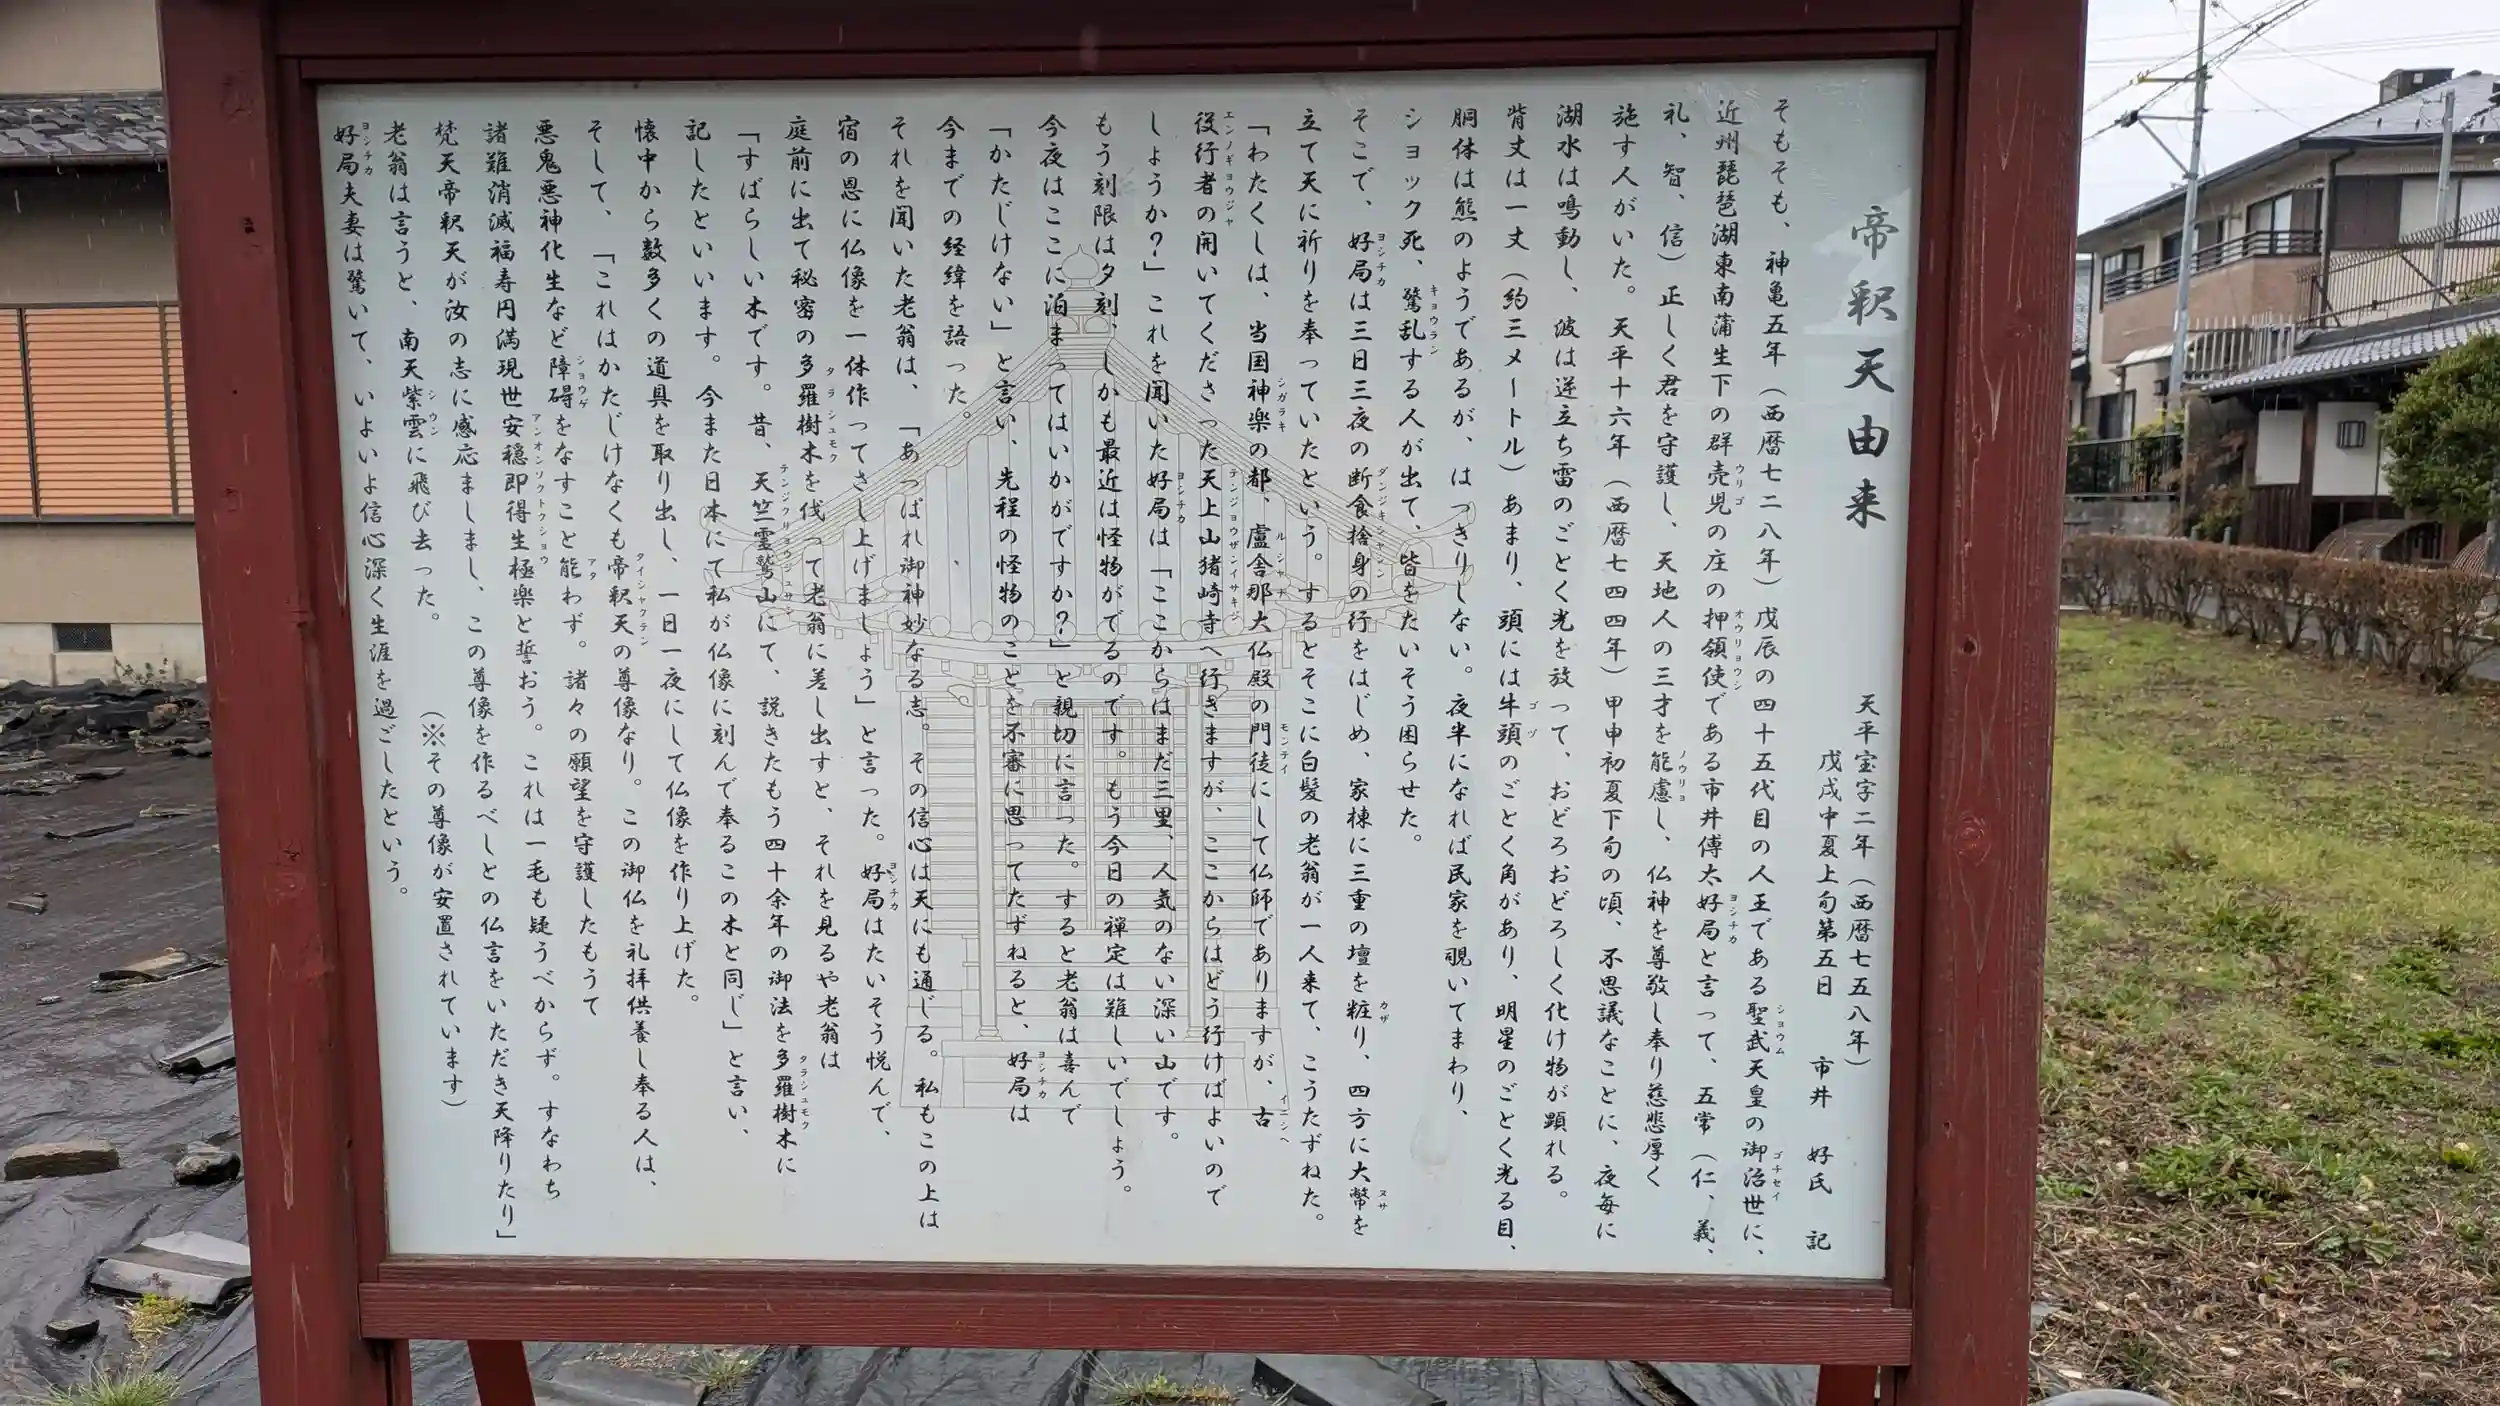 帝釈天由来
天平宝字二年（西暦七五八年）
戊戌中夏上旬第五日　市井　好氏　記
そもそも、神亀五年（西暦七二八年）戊辰の四十五代目の人王である聖武天皇の御治世に、
近州琵琶湖東南蒲生下の群売児の庄の押領使である市井傳太好局と言って、五常（仁、義、
礼、智、信）正しく君を守護し、天地人の三才を能慮し、仏神を尊敬し奉り慈悲厚く
施す人がいた。天平十六年（西暦七四四年）甲申初夏下旬の頃、不思議なことに、夜毎に
湖水は鳴動し、波は逆立ち雷のごとく光を放って、おどろおどろしく化け物が顕れる。
背丈は一丈（約三メートル）あまり、頭には牛頭のごとく角があり、明星のごとく光る目、
胴体は熊のようであるが、はっきりしない。夜半になれば民家を覗いてまわり、
ショック死、驚乱する人が出て、皆をたいそう困らせた。
そこで、好局は三日三夜の断食捨身の行をはじめ、家棟に三重の壇を粧り、四方に大幣を
立て天に祈りを奉っていたという。するとそこに白髪の老翁が一人来て、こうたずねた。
「わたくしは、当国神楽の都、盧舎那大仏殿の門徒にして仏師でありますが、古
役行者の開いてくださった天上山猪崎寺へ行きますが、ここからはどう行けばよいので
しょうか？」これを聞いた好局は「ここからはまだ三里、人気のない深い山です。
もう刻限は夕刻、しかも最近は怪物がでるのです。もう今日の禅定は難しいでしょう。
今夜はここに泊まってはいかがですか？」と親切に言った。すると老翁は喜んで
「かたじけない」と言い、先程の怪物のことを不審に思ってたずねると、好局は
今までの経緯を語った。
それを聞いた老翁は、「あっぱれ御神妙なる志。その信心は天にも通じる。私もこの上は
宿の恩に仏像を一体作ってさし上げましょう」と言った。好局はたいそう悦んで、
庭前に出て秘密の多羅樹木を伐って老翁に差し出すと、それを見るや老翁は
「すばらしい木です。昔、天竺霊鷲山にて、説きたもう四十余年の御法を多羅樹木に
記したといいます。今また日本にて私が仏像に刻んで奉るこの木と同じ」と言い、
懐中から数多くの道具を取り出し、一日一夜にして仏像を作り上げた。
そして、「これはかたじけなくも帝釈天の尊像なり。この御仏を礼拝供養し奉る人は、
悪鬼悪神化生など障碍をなすこと能わず。諸々の願望を守護したもうて
諸難消滅福寿円満現世安穏即得生極楽と誓おう。これは一毛も疑うべからず。すなわち
梵天帝釈天が汝の志に感応ましまし、この尊像を作るべしとの仏言をいただき天降りたり」
老翁は言うと、南天紫雲に飛び去った。　（※その尊像が安置されています）
好局夫妻は驚いて、いよいよ信心深く生涯を過ごしたという。